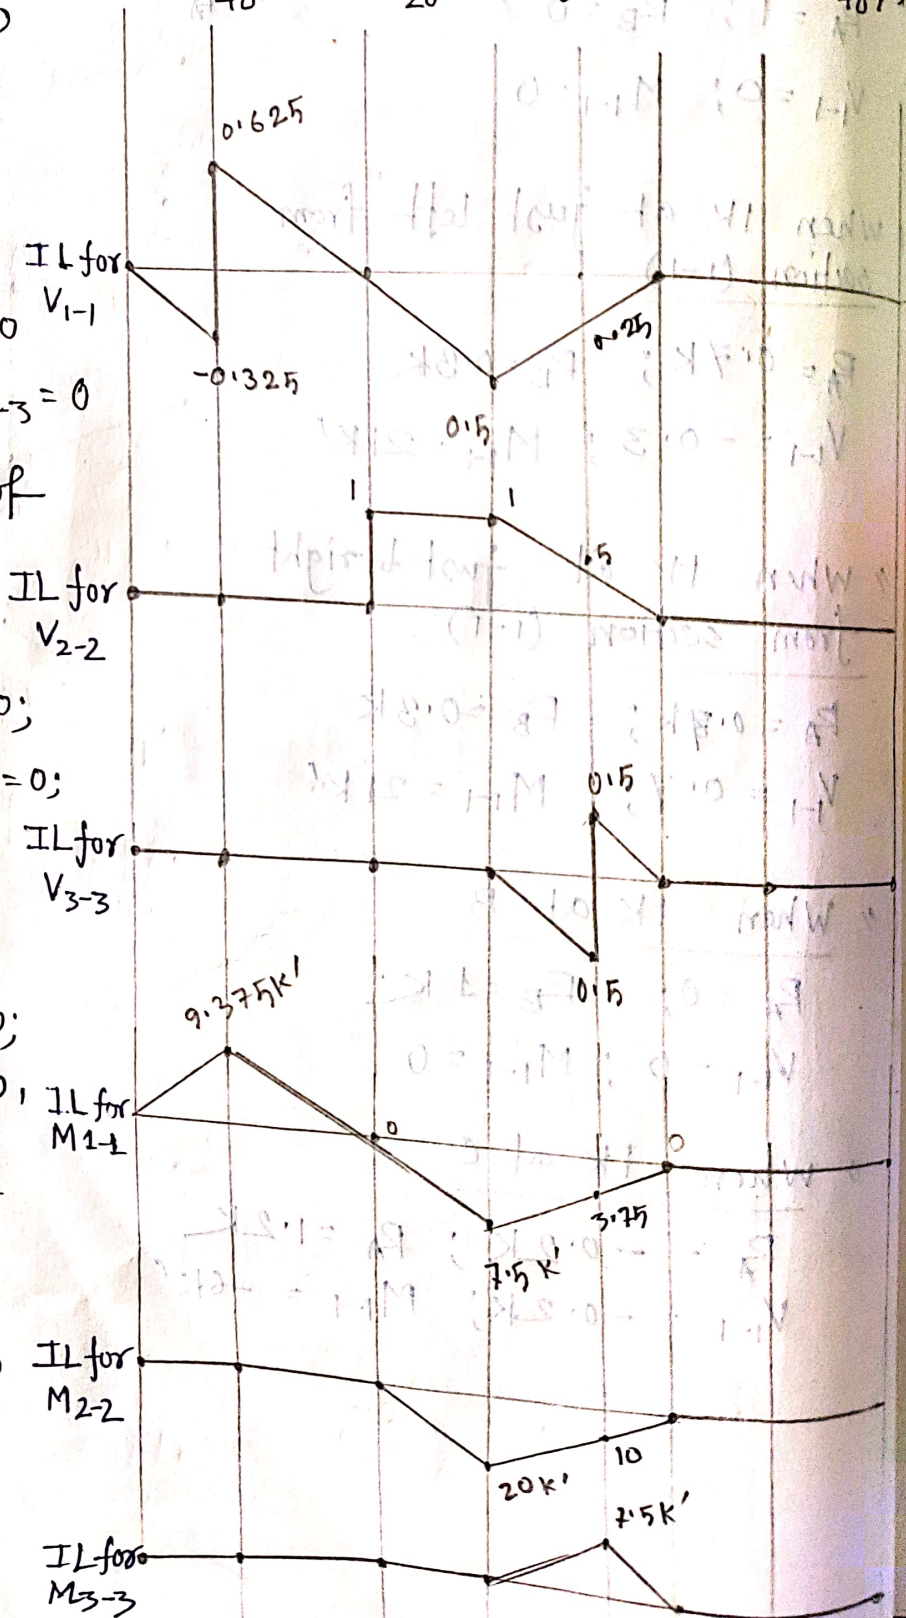 20
0.625
IL for
V1-1
-0.325
0.25
0.5
-3 = 0
1
1
.5
IL for
V2-2
=0;
0.5
IL for
V3-3
0.5
9.375K'
IL for
M1-1
0
0
3.75
7.5 K'
IL for
M2-2
10
20K'
7.5K'
IL for
M3-3